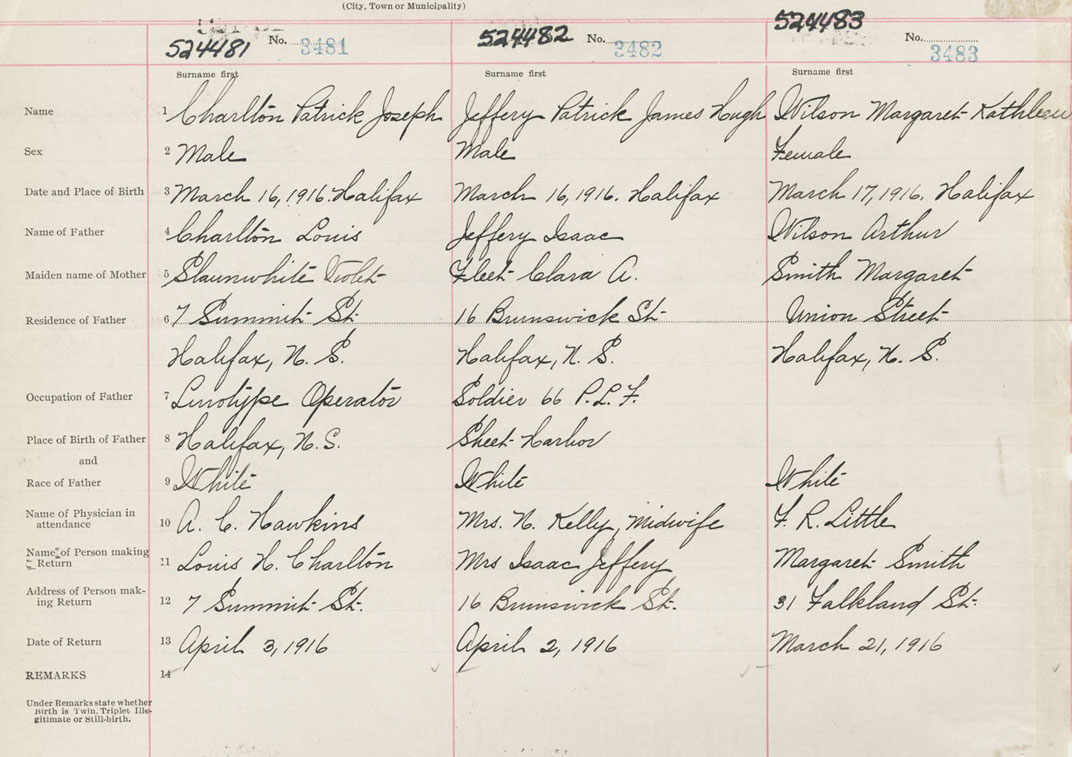 (City, Town or Municipality)
524481 No. 3481 524482 No. 3482 524483 No. 3483
Surname first Surname first Surname first
Name 1 Charlton Patrick Joseph Jeffery Patrick James Hugh Wilson Margaret Kathleen
Sex 2 Male Male Female
Date and Place of Birth 3 March 16, 1916. Halifax March 16, 1916. Halifax March 17, 1916. Halifax
Name of Father 4 Charlton Louis Jeffery Isaac Wilson Arthur
Maiden name of Mother 5 Slaunwhite Violet Fleet Clara A. Smith Margaret
Residence of Father 6 7 Summit St. 16 Brunswick St. Union Street
Halifax, N. S. Halifax, N. S. Halifax, N. S.
Occupation of Father 7 Linotype Operator Soldier 66 P.L.F.
Place of Birth of Father 8 Halifax, N.S. Sheet Harbor
and
Race of Father 9 White White White
Name of Physician in
attendance 10 A. C. Hawkins Mrs. N. Kelly, Midwife F. R. Little
Name of Person making
Return 11 Louis H. Charlton Mrs Isaac Jeffery Margaret Smith
Address of Person mak-
ing Return 12 7 Summit St. 16 Brunswick St. 31 Falkland St.
Date of Return 13 April 3, 1916 April 2, 1916 March 21, 1916
REMARKS 14
Under Remarks state whether
Birth is Twin, Triplet Ille-
gitimate or Still-birth.